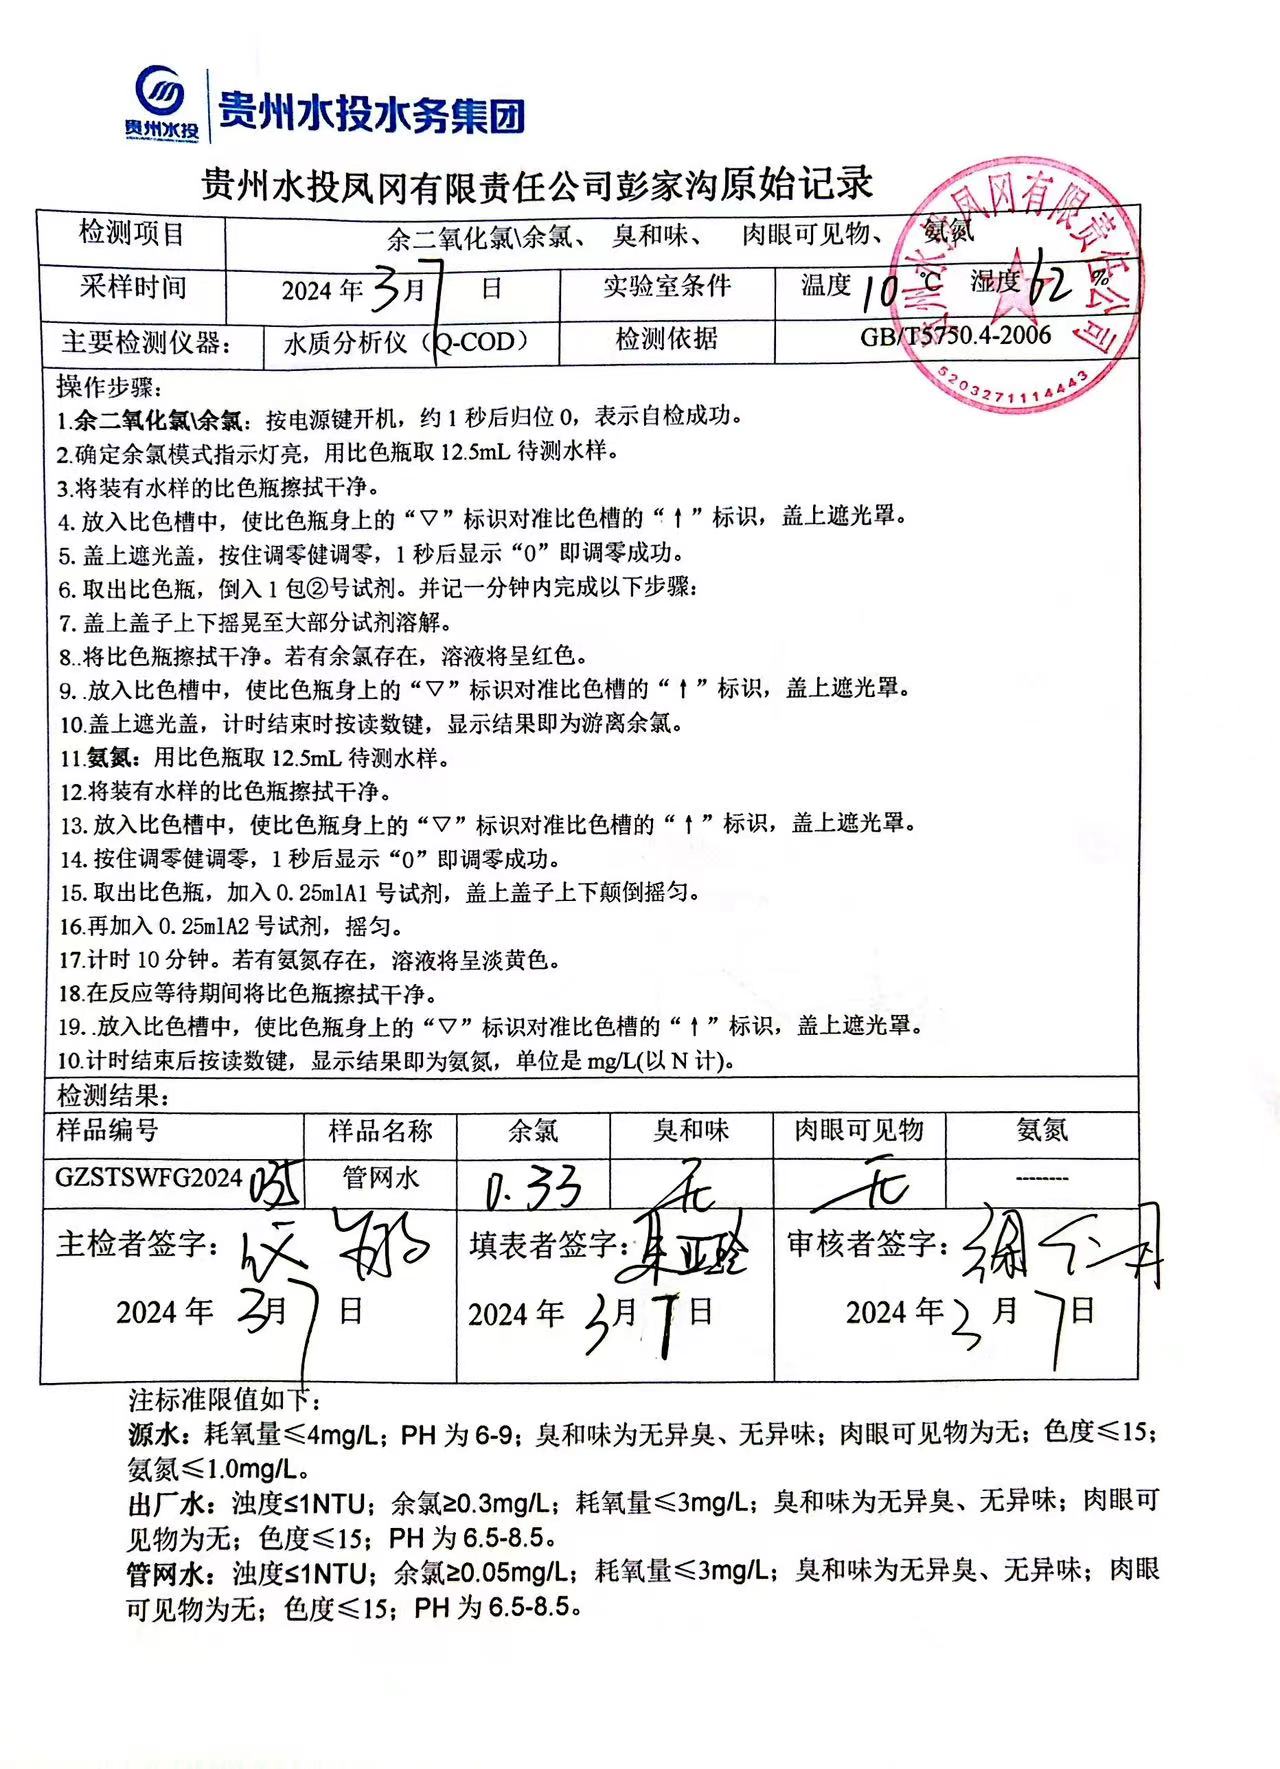 贵州水投
贵州水投水务集团
贵州水投凤冈有限责任公司彭家沟原始记录
贵州水投凤冈有限责任公司
5203271114443
检测项目 余二氧化氯\余氯、 臭和味、 肉眼可见物、 氨氮
采样时间 2024 年 3 月 7 日 实验室条件 温度 10 ℃ 湿度 62 %
主要检测仪器: 水质分析仪（Q-COD） 检测依据 GB/T5750.4-2006
操作步骤:
1.余二氧化氯\余氯：按电源键开机，约 1 秒后归位 0，表示自检成功。
2.确定余氯模式指示灯亮，用比色瓶取 12.5mL 待测水样。
3.将装有水样的比色瓶擦拭干净。
4. 放入比色槽中，使比色瓶身上的“▽”标识对准比色槽的“↑”标识，盖上遮光罩。
5. 盖上遮光盖，按住调零健调零，1 秒后显示“0”即调零成功。
6. 取出比色瓶，倒入 1 包②号试剂。并记一分钟内完成以下步骤:
7. 盖上盖子上下摇晃至大部分试剂溶解。
8..将比色瓶擦拭干净。若有余氯存在，溶液将呈红色。
9. .放入比色槽中，使比色瓶身上的“▽”标识对准比色槽的“↑”标识，盖上遮光罩。
10.盖上遮光盖，计时结束时按读数键，显示结果即为游离余氯。
11.氨氮：用比色瓶取 12.5mL 待测水样。
12.将装有水样的比色瓶擦拭干净。
13. 放入比色槽中，使比色瓶身上的“▽”标识对准比色槽的“↑”标识，盖上遮光罩。
14. 按住调零健调零，1 秒后显示“0”即调零成功。
15. 取出比色瓶，加入 0.25mlA1 号试剂，盖上盖子上下颠倒摇匀。
16.再加入 0.25mlA2 号试剂，摇匀。
17.计时 10 分钟。若有氨氮存在，溶液将呈淡黄色。
18.在反应等待期间将比色瓶擦拭干净。
19. .放入比色槽中，使比色瓶身上的“▽”标识对准比色槽的“↑”标识，盖上遮光罩。
10.计时结束后按读数键，显示结果即为氨氮，单位是 mg/L(以 N 计)。
检测结果:
样品编号 样品名称 余氯 臭和味 肉眼可见物 氨氮
GZSTSWFG2024 035 管网水 0.33 无 无 --------
主检者签字: 填表者签字: 朱亚玲 审核者签字:
2024 年 3月 7 日 2024 年 3 月 7 日 2024 年 3 月 7 日
注标准限值如下:
源水：耗氧量≤4mg/L；PH 为 6-9；臭和味为无异臭、无异味；肉眼可见物为无；色度≤15；
氨氮≤1.0mg/L。
出厂水：浊度≤1NTU；余氯≥0.3mg/L；耗氧量≤3mg/L；臭和味为无异臭、无异味；肉眼可
见物为无；色度≤15；PH 为 6.5-8.5。
管网水：浊度≤1NTU；余氯≥0.05mg/L；耗氧量≤3mg/L；臭和味为无异臭、无异味；肉眼
可见物为无；色度≤15；PH 为 6.5-8.5。